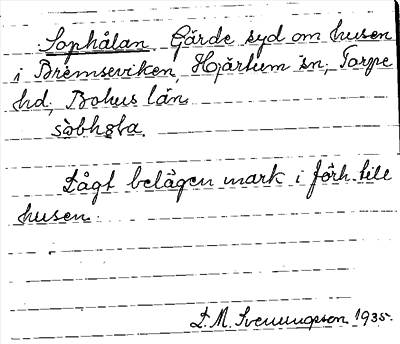 Sophålan, Gärde syd om husen
i Bremseviken, Hjärtum sn, Torpe
hd, Bohus län
Lågt belägen mark i förh. till
husen
L. M. Svenungsson 1935.